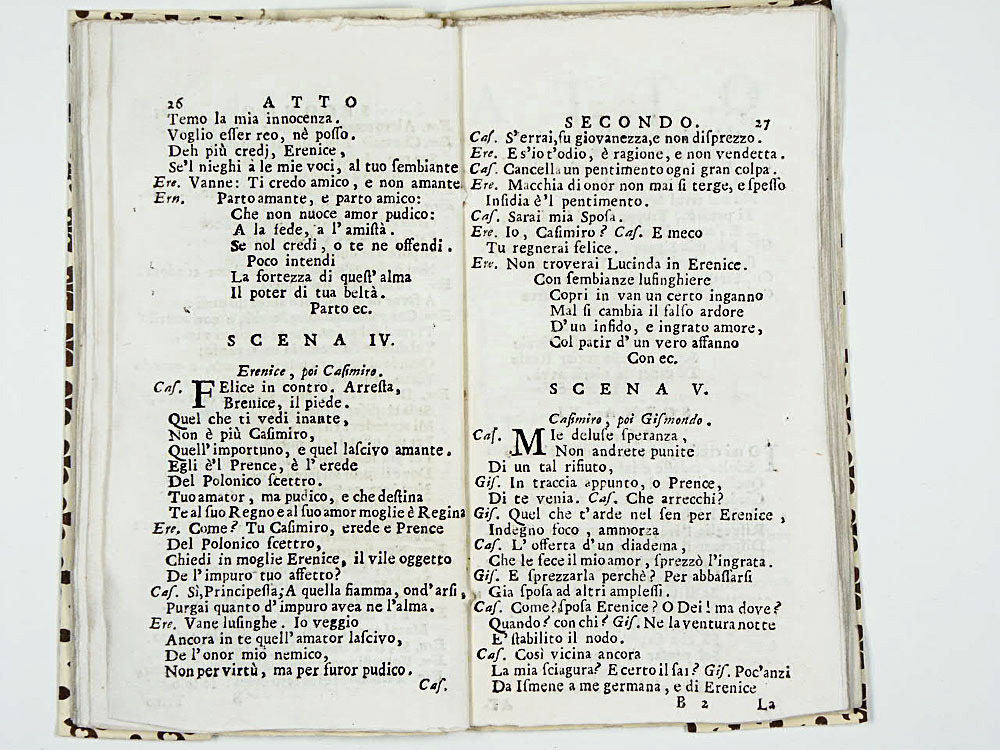 26 ATTO
Temo la mia innocenza.
Voglio eſſer reo, nè poſſo.
Deh più credj, Erenice,
Se'l nieghi à le mie voci, al tuo ſembiante
Ere. Vanne: Ti credo amico, e non amante
Ern. Parto amante, e parto amico:
Che non nuoce amor pudico:
A la fede, a l'amiſtà.
Se nol credi, o te ne offendi.
Poco intendi
La fortezza di queſt' alma
Il poter di tua beltà.
Parto ec.
SCENA IV.
Erenice, poi Caſimiro.
Caſ. FElice in contro. Arreſta,
Brenice, il piede.
Quel che ti vedi inante,
Non è più Caſimiro,
Quell'importuno, e quel laſcivo amante.
Egli è'l Prence, è l'erede
Del Polonico ſcettro.
Tuo amator, ma pudico, e che deſtina
Te al ſuo Regno e al ſuo amor moglie è Regina
Ere. Come? Tu Caſimiro, erede e Prence
Del Polonico ſcettro,
Chiedi in moglie Erenice, il vile oggetto
De l'impuro tuo affetto?
Caſ. Sì, Principeſſa; A quella fiamma, ond'arſi,
Purgai quanto d'impuro avea ne l'alma.
Ere. Vane luſinghe. Io veggio
Ancora in te quell'amator laſcivo,
De l'onor mio nemico,
Non per virtù, ma per furor pudico.
Caſ.
SECONDO. 27
Caſ. S'errai, fu giovanezza, e non diſprezzo.
Ere. E s'io t'odio, è ragione, e non vendetta.
Caſ. Cancella un pentimento ogni gran colpa.
Ere. Macchia di onor non mai ſi terge, e ſpeſſo
Inſidia è'l pentimento.
Caſ. Sarai mia Spoſa.
Ere. Io, Caſimiro? Caſ. E meco
Tu regnerai felice.
Ere. Non troverai Lucinda in Erenice.
Con ſembianze luſinghiere
Copri in van un certo inganno
Mal ſi cambia il falſo ardore
D'un infido, e ingrato amore,
Col patir d'un vero affanno
Con ec.
SCENA V.
Caſimiro, poi Giſmondo.
Caſ. MIe deluſe ſperanza,
Non andrete punite
Di un tal rifiuto,
Giſ. In traccia appunto, o Prence,
Di te venia. Caſ. Che arrecchi?
Giſ. Quel che t'arde nel ſen per Erenice,
Indegno foco, ammorza
Caſ. L'offerta d'un diadema,
Che le fece il mio amor, ſprezzò l'ingrata.
Giſ. E ſprezzarla perchè? Per abbaſſarſi
Gia ſpoſa ad altri ampleſſi.
Caſ. Come? ſpoſa Erenice? O Dei! ma dove?
Quando? con chi? Giſ. Ne la ventura notte
E' ſtabilito il nodo.
Caſ. Così vicina ancora
La mia ſciagura? E certo il ſai? Giſ. Poc'anzi
Da Iſmene a me germana, e di Erenice
B 2 La